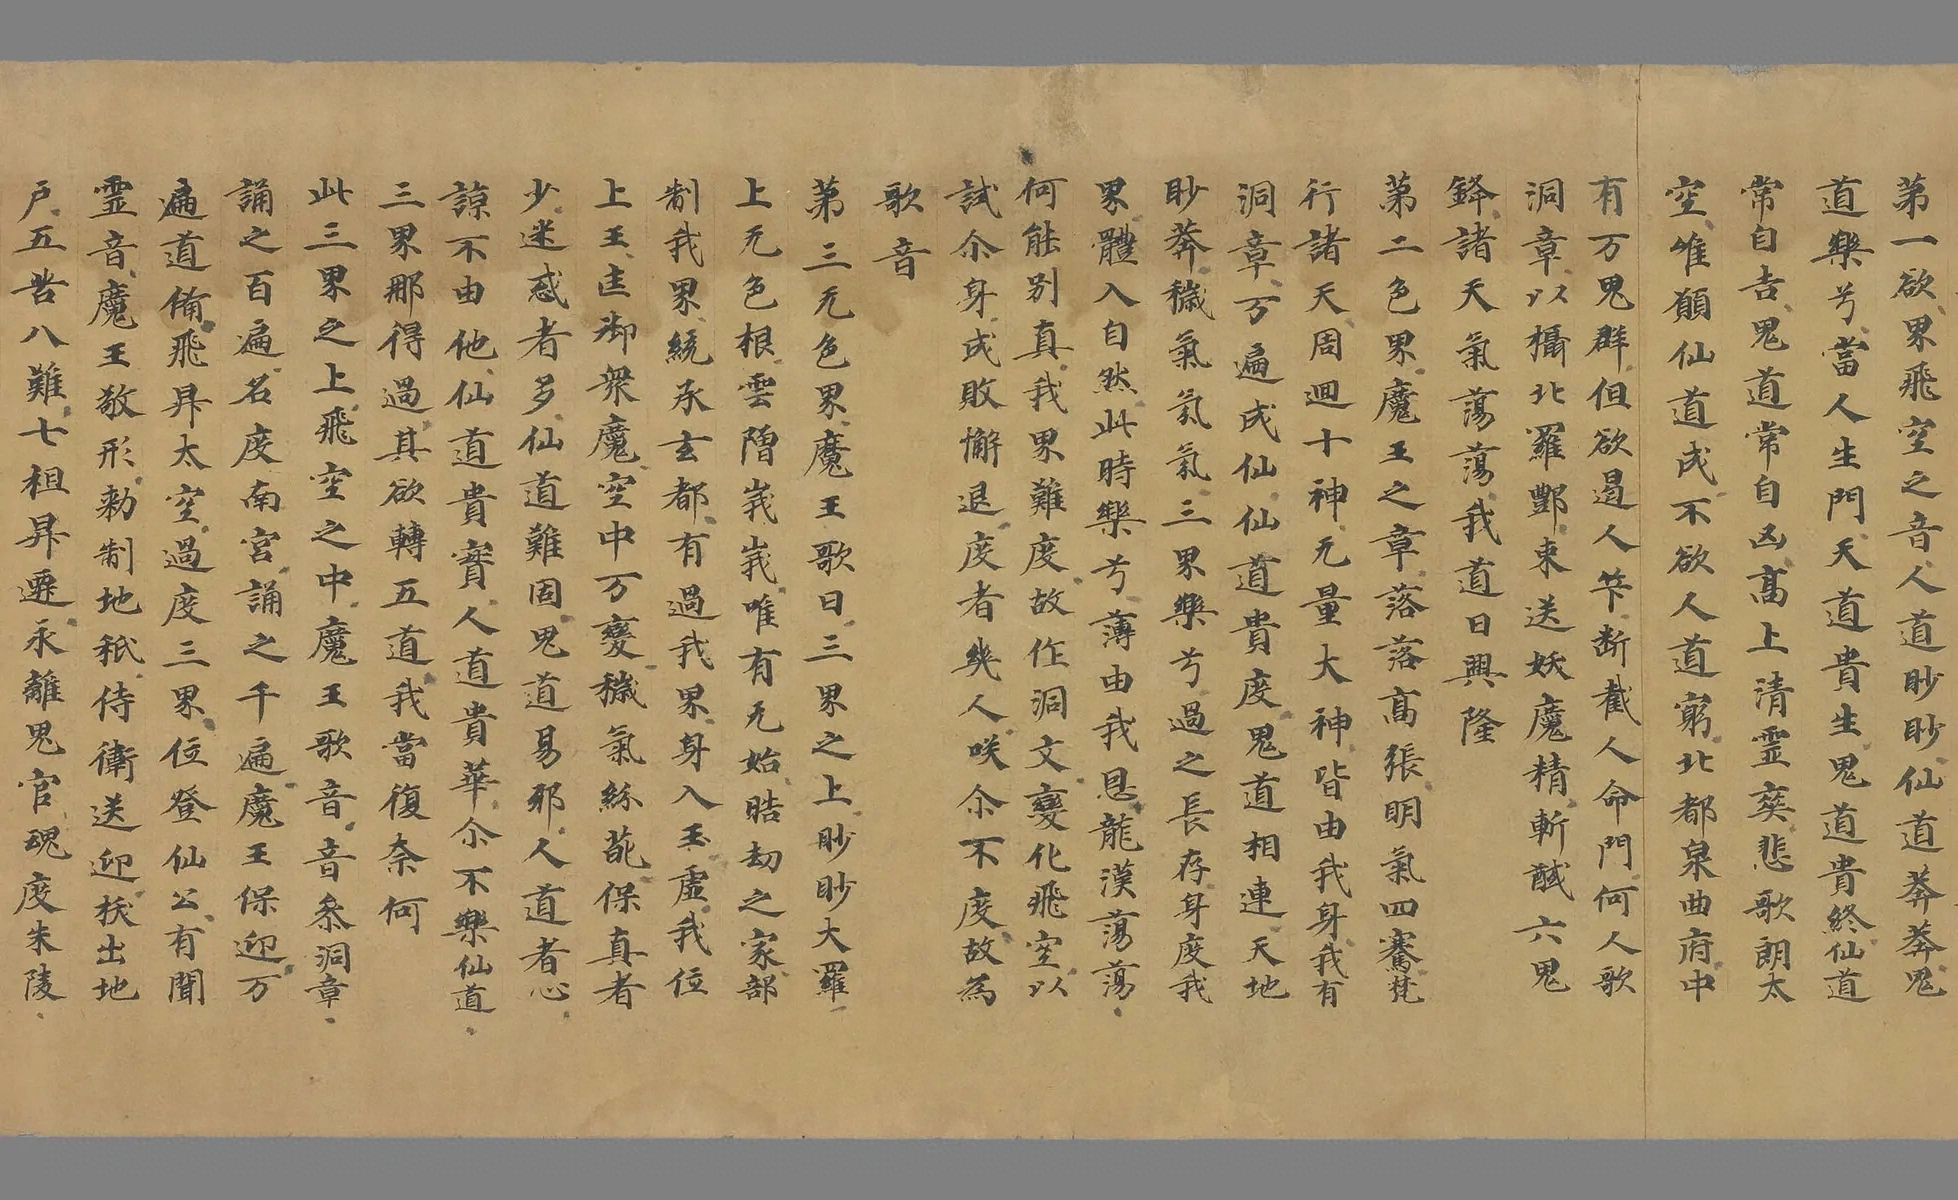 第一欲界飛空之音人道眇眇仙道莽莽鬼
道樂兮當人生門天道貴生鬼道貴終仙道
常自吉鬼道常自凶高上清霊𡙇悲歌朗太
空唯願仙道成不欲人道窮北都泉曲府中
有万鬼群但欲遏人筭断截人命門何人歌
洞章以攝北羅酆束送妖魔精斬馘六鬼
鋒諸天氣蕩蕩我道日興隆
第二色界魔王之章落落高張明氣四騫梵
行諸天周迴十神无量大神皆由我身我有
洞章万遍成仙仙道貴度鬼道相連天地
眇莽穢氣氛氣三界樂兮過之長存身度我
界體入自然此時樂兮薄由我恩龍漢蕩蕩
何能別真我界難度故作洞文變化飛空以
試尒身成敗懈退度者幾人咲尒不度故為
歌音
第三无色界魔王歌曰三界之上眇眇大羅
上无色根雲層峩峩唯有无始晧劫之家部
制我界統承玄都有過我界身入玉虛我位
上王匡御衆魔空中万變穢氣紛葩保真者
少迷惑者多仙道難固鬼道易邪人道者心
諒不由他仙道貴實人道貴華尒不樂仙道
三界那得過其欲轉五道我當復奈何
此三界之上飛空之中魔王歌音音条洞章
誦之百遍名度南宮誦之千遍魔王保迎万
遍道備飛昇太空過度三界位登仙公有聞
霊音魔王敬形勑制地祇侍衛送迎扶出地
戶五苦八難七祖昇遷永離鬼官魂度朱陵